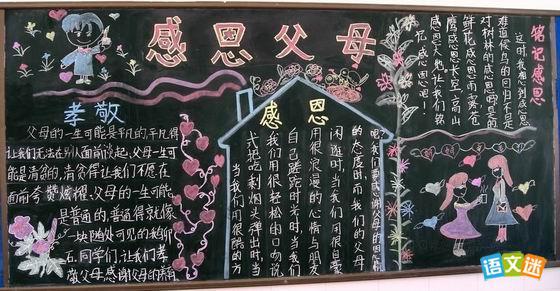 感恩父母
孝敬
父母的一生可能是平凡的,平凡得
让我们无法在别人面前谈起,父母一生可
能是清贫的,清贫得让我们不愿在
面前夸赞炫耀,父母的一生可能
是普通的,普通得就像
一块随处可见的鹅卵
石,同学们,让我们孝
敬父母感谢父母的
感恩
吧,我们要感谢父母的恩
的态度时,而我们的父母
闲逛时,当我们用很自
用很浪漫的心情与朋友
自己蹉跎时光时,当我们
我们用很轻松的口吻说
式把吃剩烟头弹出时,当
当我们用很酷的方
铭记感恩
这时我想到感恩
难道候鸟的回归不是
对树林的感恩吗是的
鲜花感恩雨露,苍
鹰感恩长空,高山
感恩大地,让我们铭
记感恩吧!
语文迷